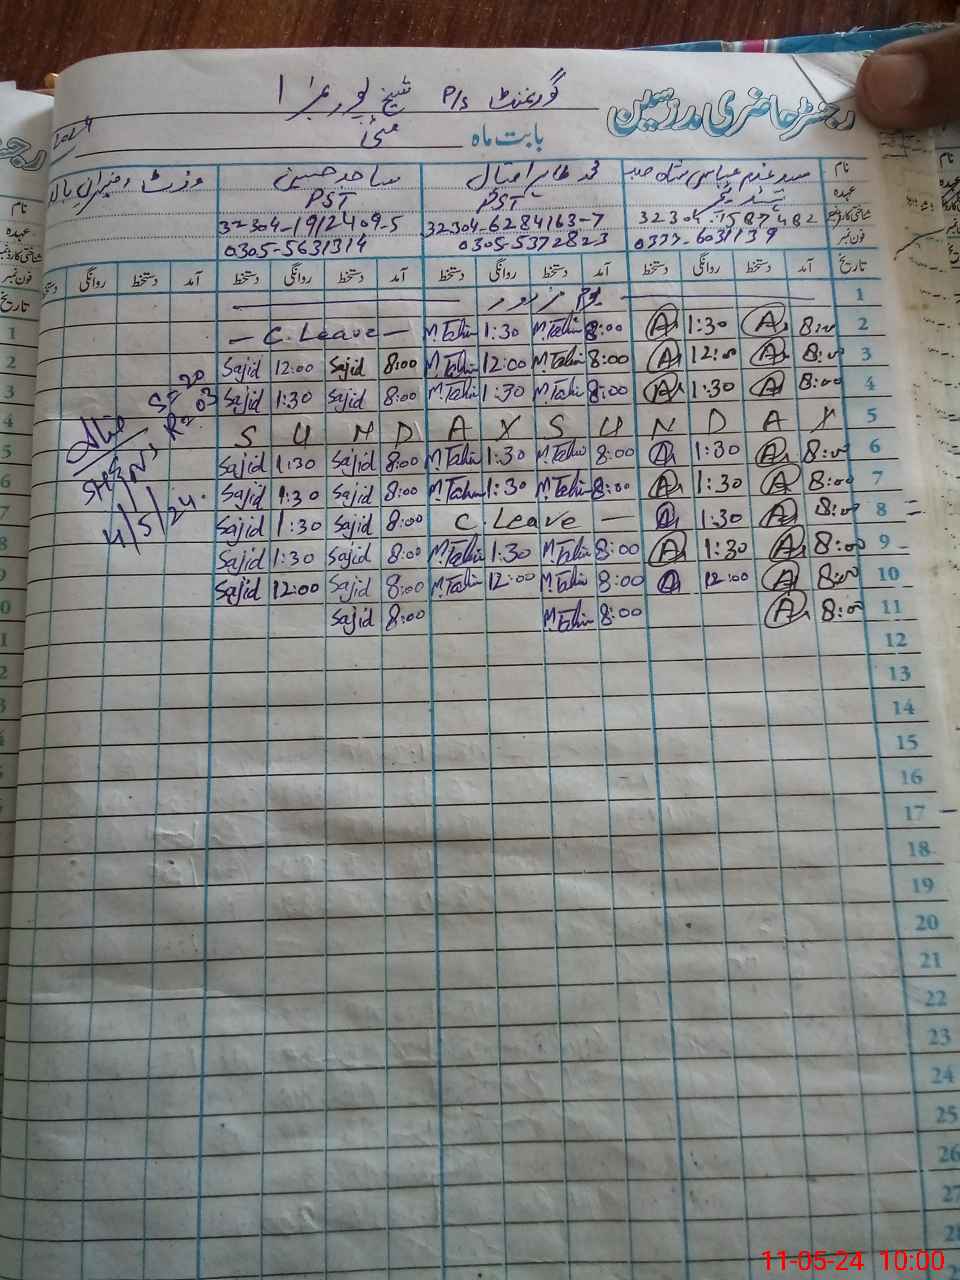 رجسٹر حاضری مدرسین
گورنمنٹ P/s شیخ پور نمبر 1
بابت ماہ مئی 2024
نام سید غلام عباس شاہ صاحب محمد طاہر اقبال ساجد حسین وزٹ
عہدہ PST PST
شناختی کارڈ نمبر 32304-6284163-7 32304-1912409-5
فون نمبر 0333-6031139 0305-5372823 0305-5631314
تاریخ آمد دستخط روانگی دستخط آمد دستخط روانگی دستخط آمد دستخط روانگی دستخط آمد دستخط روانگی دستخط
1 یوم مزدور
2 8:00 A 1:30 A 8:00 M.Tahir 1:30 M.Tahir — C. Leave —
3 8:00 A 12:00 A 8:00 M.Tahir 12:00 M.Tahir 8:00 Sajid 12:00 Sajid
4 8:00 A 1:30 A 8:00 M.Tahir 1:30 M.Tahir 8:00 Sajid 1:30 Sajid
5 S U N D A Y S U N D A Y
6 8:00 A 1:30 A 8:00 M.Tahir 1:30 M.Tahir 8:00 Sajid 1:30 Sajid
7 8:00 A 1:30 A 8:00 M.Tahir 1:30 M.Tahir 8:00 Sajid 1:30 Sajid
8 8:00 A 1:30 A C. Leave — 8:00 Sajid 1:30 Sajid
9 8:00 A 1:30 A 8:00 M.Tahir 1:30 M.Tahir 8:00 Sajid 1:30 Sajid
10 8:00 A 12:00 A 8:00 M.Tahir 12:00 M.Tahir 8:00 Sajid 12:00 Sajid
11 8:00 A 8:00 M.Tahir 8:00 Sajid
12
13
14
15
16
17
18
19
20
21
22
23
24
25
26
27
28
S=20
R=03
11/5/24
11-05-24 10:00